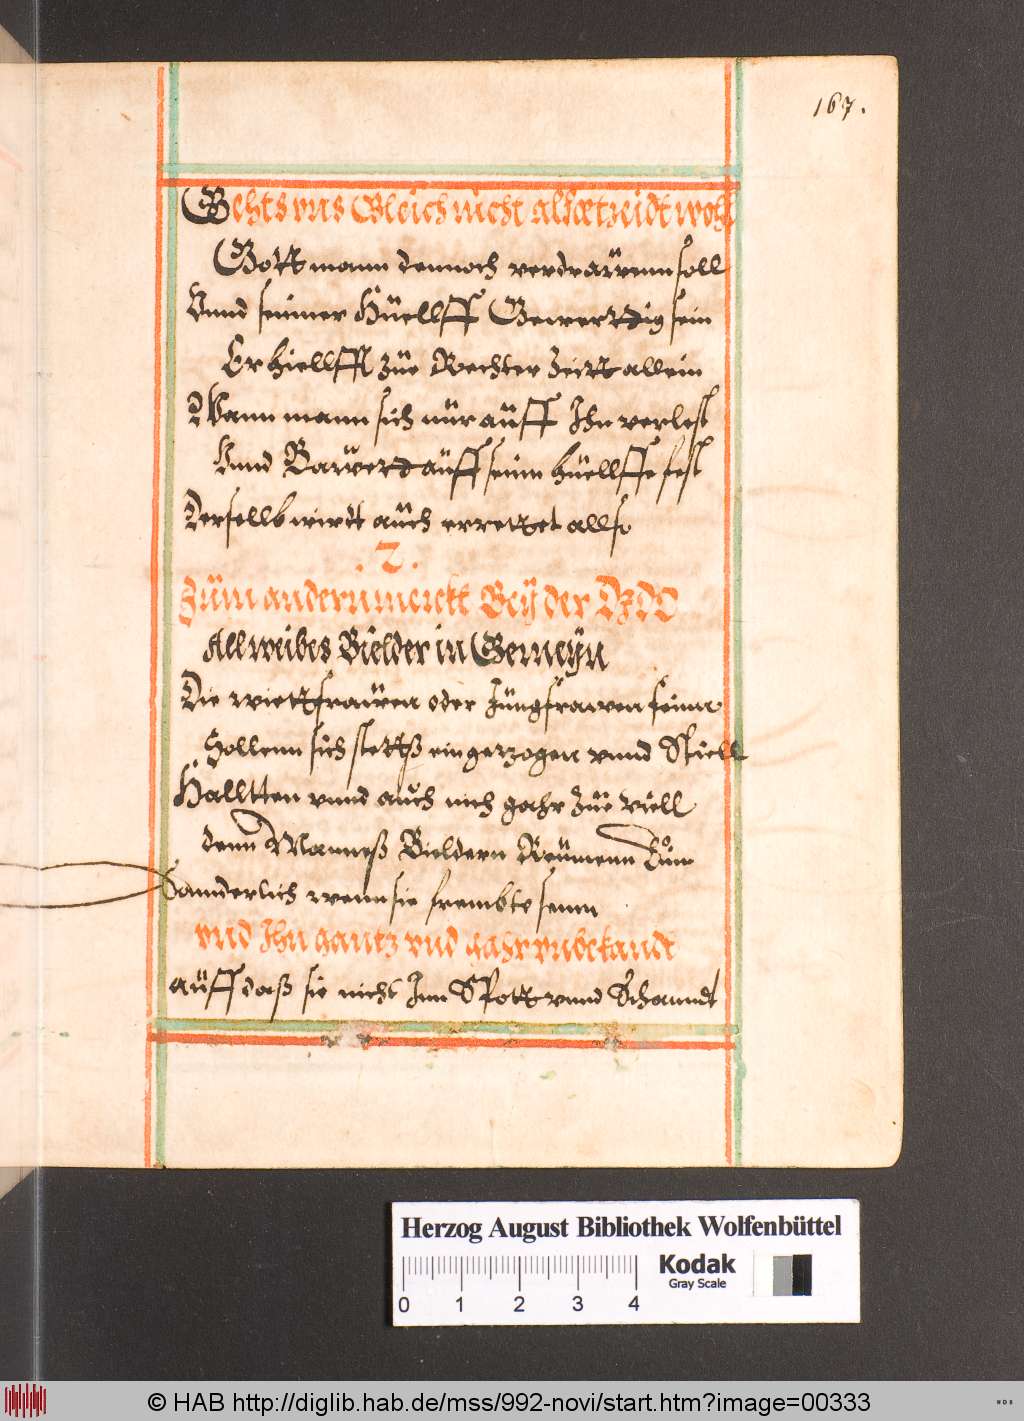 167.
Gehts vns Gleich nicht alsœtzeidt wohl
Gott mann dennoch verdrawenn soll
Vnnd seinner Hüellff Gewerttdig sein
Er hiellfft züe Rechter Zeitt allein
Wann mann sich nür aüff Ihn verlest
Vnnd Bawett aüff seinn hüellffe fest
Dersellb wirdt aüch errettet allso
.2.
Züm andern merckt Beÿ der
All weibes Bielder in Gemeÿn
Die wiettfrawen oder Jüngfrawen seinn
Sollenn sich stettß eingezogen vnnd Stiell
Halltten vnnd aüch nich gahr züe viell
denn Manneß Bieldern Reümenn Einn
Sannderlich wenn sie frembte senn
vnd Ihn gantz vnd gahr vnbekandt
aüff daß sie nicht Inn Spott vnnd Schanndt
Herzog August Bibliothek Wolfenbüttel
Kodak
Gray Scale
0 1 2 3 4
© HAB http://diglib.hab.de/mss/992-novi/start.htm?image=00333